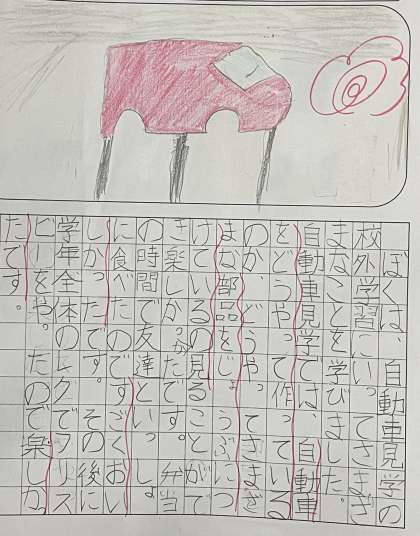 ぼくは、自動車見学の
校外学習にいってさまざ
まなことを学びました。
自動車見学では、自動車
をどうやって作っている
のか、どうやってさまざ
まな部品をじょうぶにつ
けているの見ることがで
き楽しかったです。弁当
の時間で友達といっしょ
に食べたのですごくおい
しかったです。その後に
学年全体のレクでフリス
ビーをやったので楽しかっ
たです。